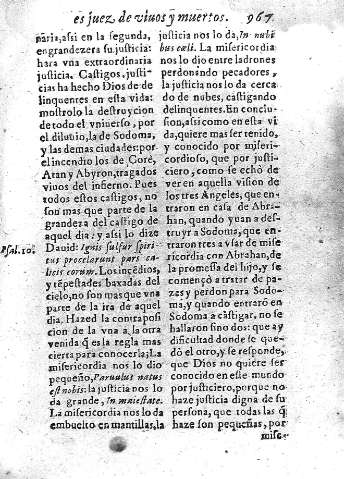 es juez de viuos y muertos. 967
naria, assi en la segunda,
engrandezera su justicia:
hara vna extraordinaria
justicia. Castigos, justi-
cias ha hecho Dios de de-
linquentes en esta vida:
mostrolo la destruycion
de todo el vniuerso, por
el diluuio, la de Sodoma,
y las demas ciudades: por
el incendio los de Corè,
Atan y Abyron, tragados
viuos del infierno. Pues
todos estos castigos, no
son mas que parte de la
grandeza del castigo de
aquel dia: y assi lo dize
Psal. 10. Dauid: Ignis sulfur spiri-
tus procelarum pars ca-
licis eorum. Los incẽdios,
y tẽpestades baxadas del
cielo, no son mas que vna
parte de la ira de aquel
dia. Hazed la contraposi
cion de la vna a la otra
venida q̃ es la regla mas
cierta para conocerla; La
misericordia nos lo dio
pequeño, Paruulus natus
est nobis: la justicia nos lo
da grande, In maiestate.
La misericordia nos lo da
embuelto en mantillas, la
justicia nos lo da, In nubi
bus cæli. La misericordia
nos lo dio entre ladrones
perdonãndo pecadores,
la justicia nos lo da cerca
do de nubes, castigando
delinquentes. En conclu-
sion, assi como en esta vi
da, quiere mas ser tenido,
y conocido por miseri-
cordioso, que por justi-
ciero, como se echò de
ver en aquella vision de
los tres Angeles, que en-
traron en casa de Abra-
han, quando yuan a des-
truyr a Sodoma, que en-
traron tres a vsar de mise
ricordia con Abrahan, de
la promessa del hijo, y se
començò a tratar de pa-
zes y perdon para Sodo-
ma, y quando entrarõ en
Sodoma a castigar, no se
hallaron sino dos: que ay
dificultad donde se que-
dò el otro, y se responde,
que Dios no quiere ser
conocido en este mundo
por justiciero, porque no
haze justicia digna de su
persona, que todas las q̃
haze son pequeñas, por
mise-